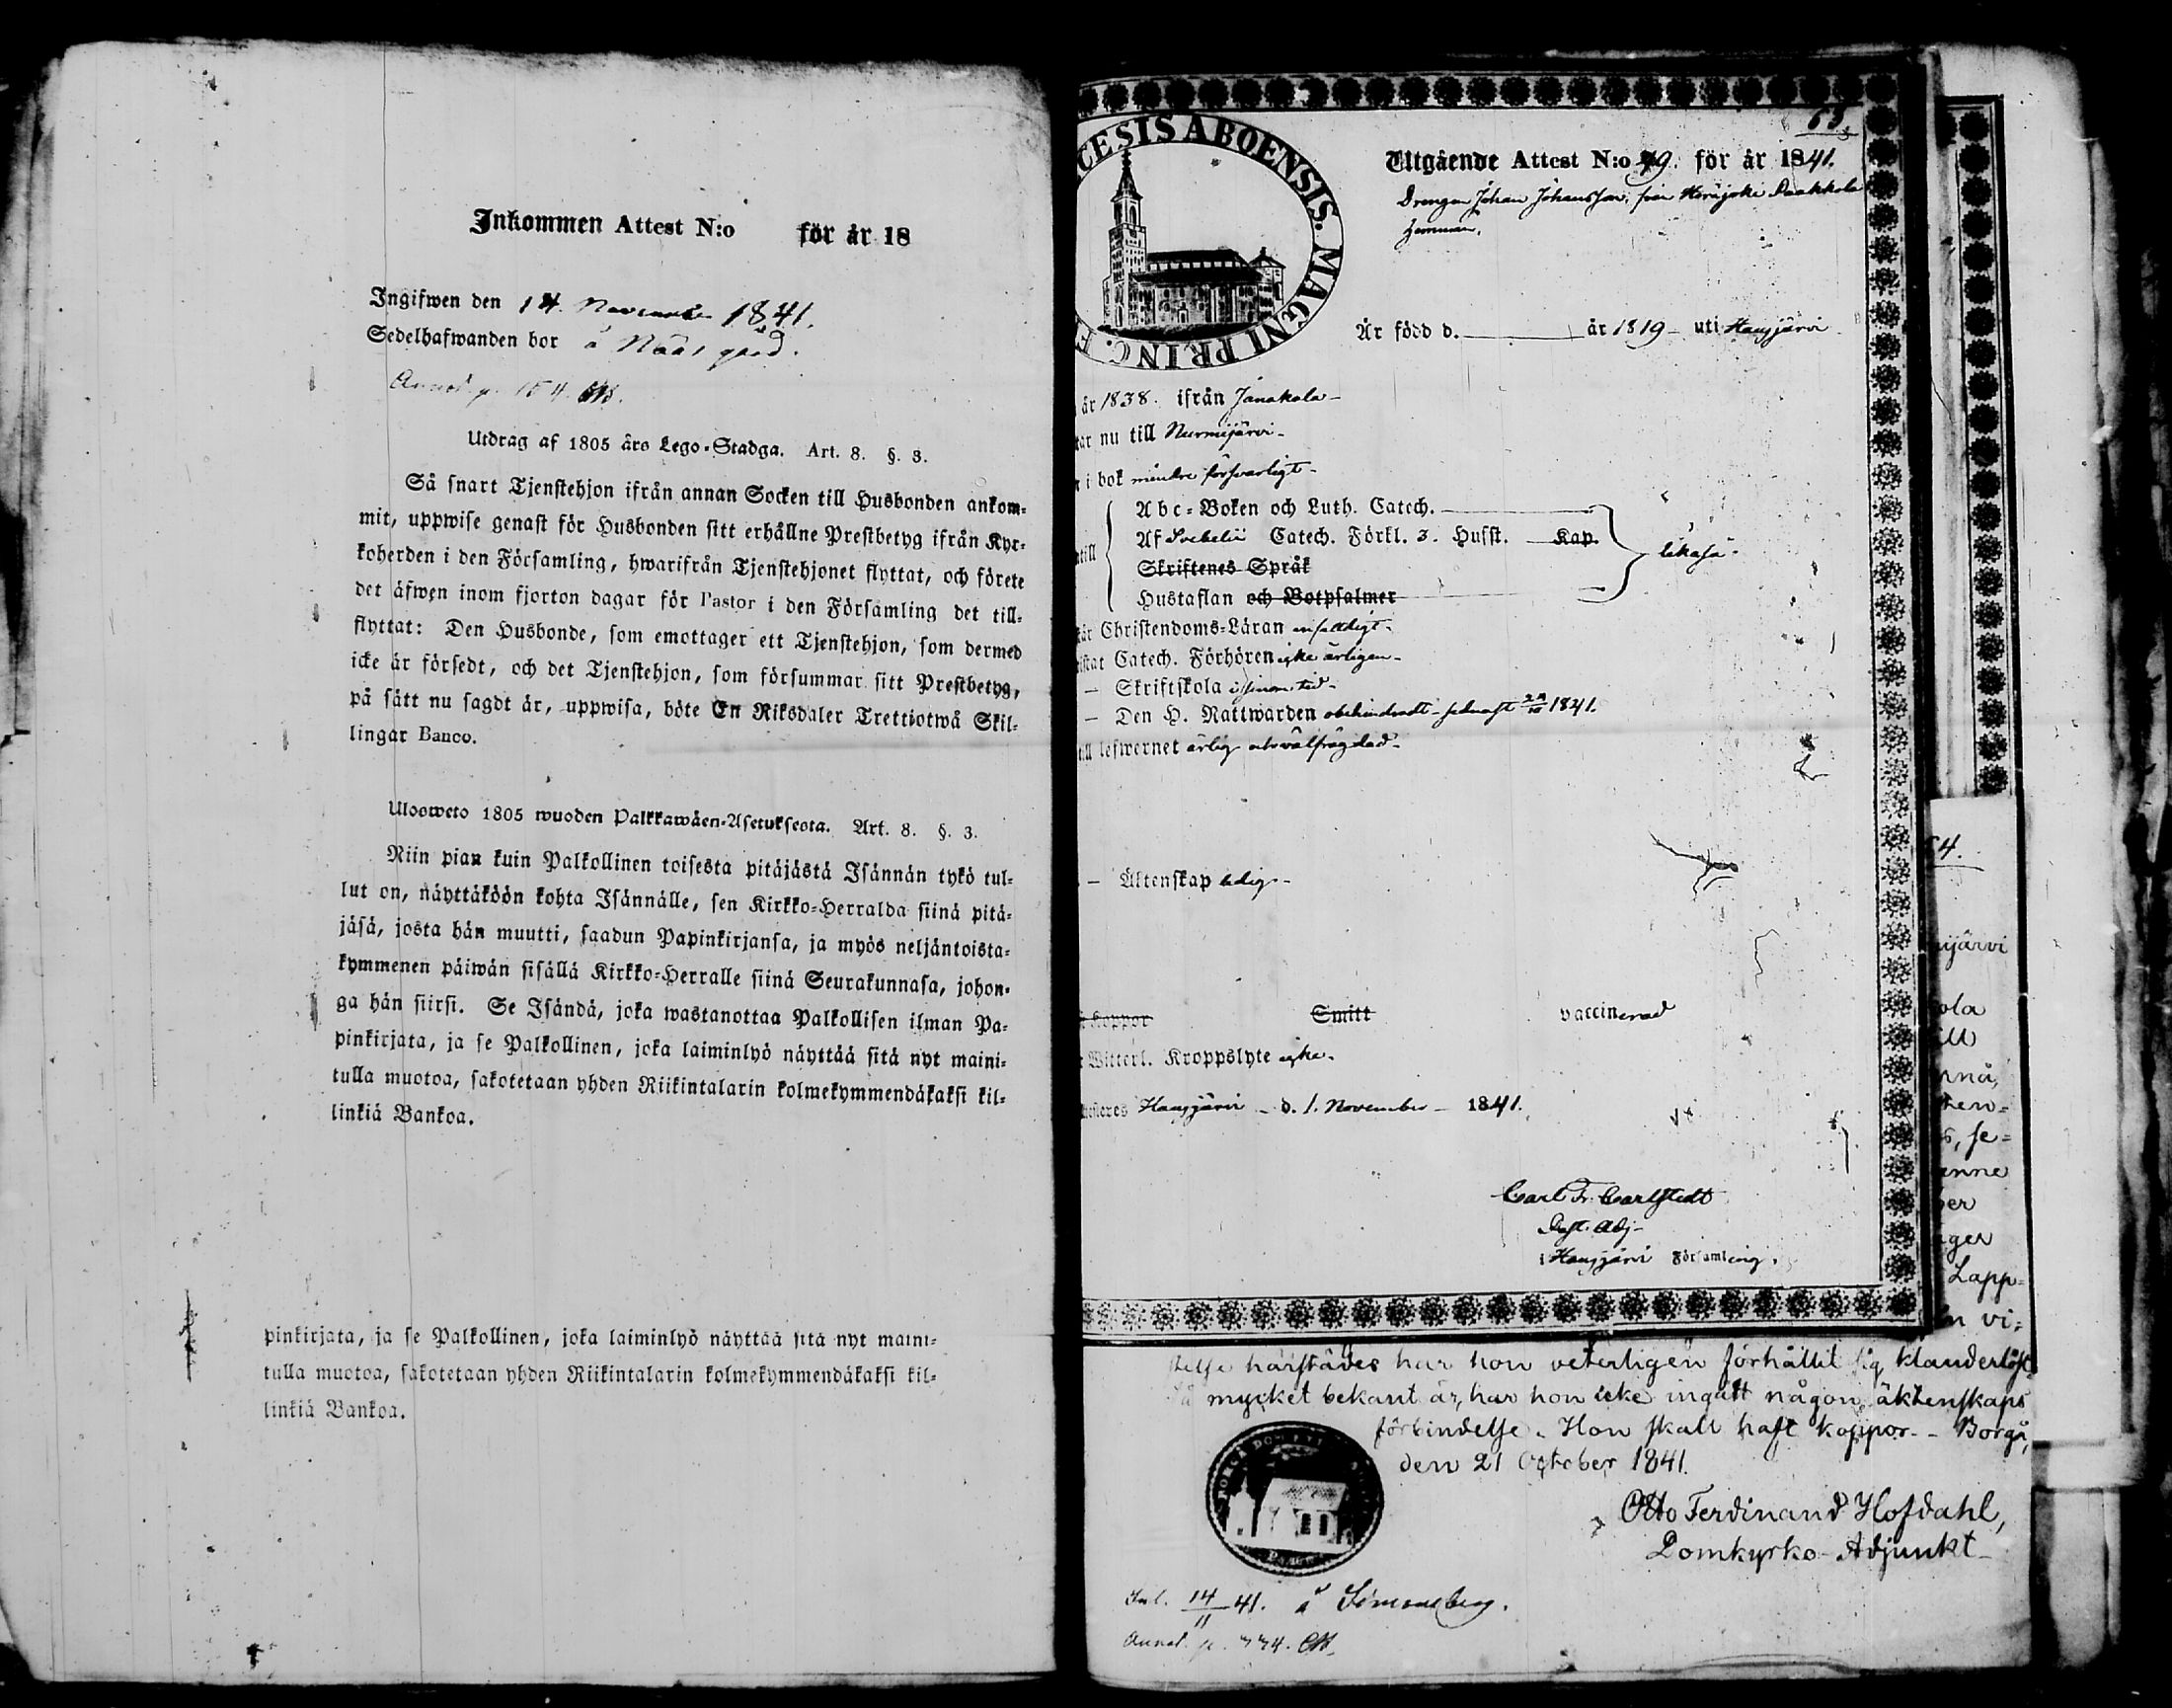 Inkommen Attest N:o för år 18
Ingifwen den 14. November 1841.
Sedelhafwanden bor å Näs gård.
Annot. p. 154.
Utdrag af 1805 års Lego-Stadga. Art. 8. §. 3.
Så snart Tjenstehjon ifrån annan Socken till Husbonden ankom-
mit, uppwise genast för Husbonden sitt erhållne Prestbetyg ifrån Kyr-
koherden i den Församling, hwarifrån Tjenstehjonet flyttat, och förete
det äfwen inom fjorton dagar för Pastor i den Församling det till-
flyttat: Den Husbonde, som emottager ett Tjenstehjon, som dermed
icke är försedt, och det Tjenstehjon, som försummar sitt Prestbetyg,
på sätt nu sagdt är, uppwisa, böte En Riksdaler Trettiotwå Skil-
lingar Banco.
Ulosweto 1805 wuoden Palkkawäen-Asetuksesta. Art. 8. §. 3.
Niin pian kuin Palkollinen toisesta pitäjästä Isännän tykö tul-
lut on, näyttäköön kohta Isännälle, sen Kirkko-Herralda siinä pitä-
jäsä, josta hän muutti, saadun Papinkirjansa, ja myös neljäntoista-
kymmenen päiwän sisällä Kirkko-Herralle siinä Seurakunnasa, johon-
ga hän siirsi. Se Isändä, joka wastanottaa Palkollisen ilman Pa-
pinkirjata, ja se Palkollinen, joka laiminlyö näyttää sitä nyt maini-
tulla muotoa, sakotetaan yhden Riikintalarin kolmekymmendäkaksi kil-
linkiä Bankoa.
pinkirjata, ja se Palkollinen, joka laiminlyö näyttää sitä nyt maini-
tulla muotoa, sakotetaan yhden Riikintalarin kolmekymmendäkaksi kil-
linkiä Bankoa.
63.
CESIS ABOENSIS. MAGNI PRINC. F
Utgående Attest N:o 79. för år 1841.
Drengen Johan Johansson, från Herajoki Paakkola
hemman.
Är född d. år 1819 uti Hausjärvi
år 1838. ifrån Janakala
tar nu till Nurmijärvi
i bok mindre försvarligt
Abc-Boken och Luth. Catech.
Af Svebelii Catech. Förkl. 3. Husst. Kap.
likaså
Skriftenes Språk
Hustaflan och Botpsalmer
Christendoms-Läran enfaldigt
Catech. Förhören icke årligen
Skriftskola i sinom tid
Den H. Nattwarden obehindradt senast 1841.
lefwernet ärlig och välfrägdad
Äktenskap ledig
Koppor Smitt vaccinerad
Witterl. Kroppslyte icke
Hausjärvi d. 1. November 1841.
Carl Fr. Carlstedt
Past. Adj.
i Hausjärvi Församling.
54.
ijärvi
ola
ill
nnå,
ten-
s, se-
enne
ber
nger
Lapp-
n vi-
telse härstädes har hon veterligen förhållit sig klanderlöst
så mycket bekant är, har hon icke ingått någon äktenskaps
förbindelse. Hon skall haft koppor. - Borgå,
den 21 October 1841.
Otto Ferdinand Hofdahl,
Domkyrko-Adjunkt
Inl. 14/11 41. å Simonsberg.
Annot. p. 334.